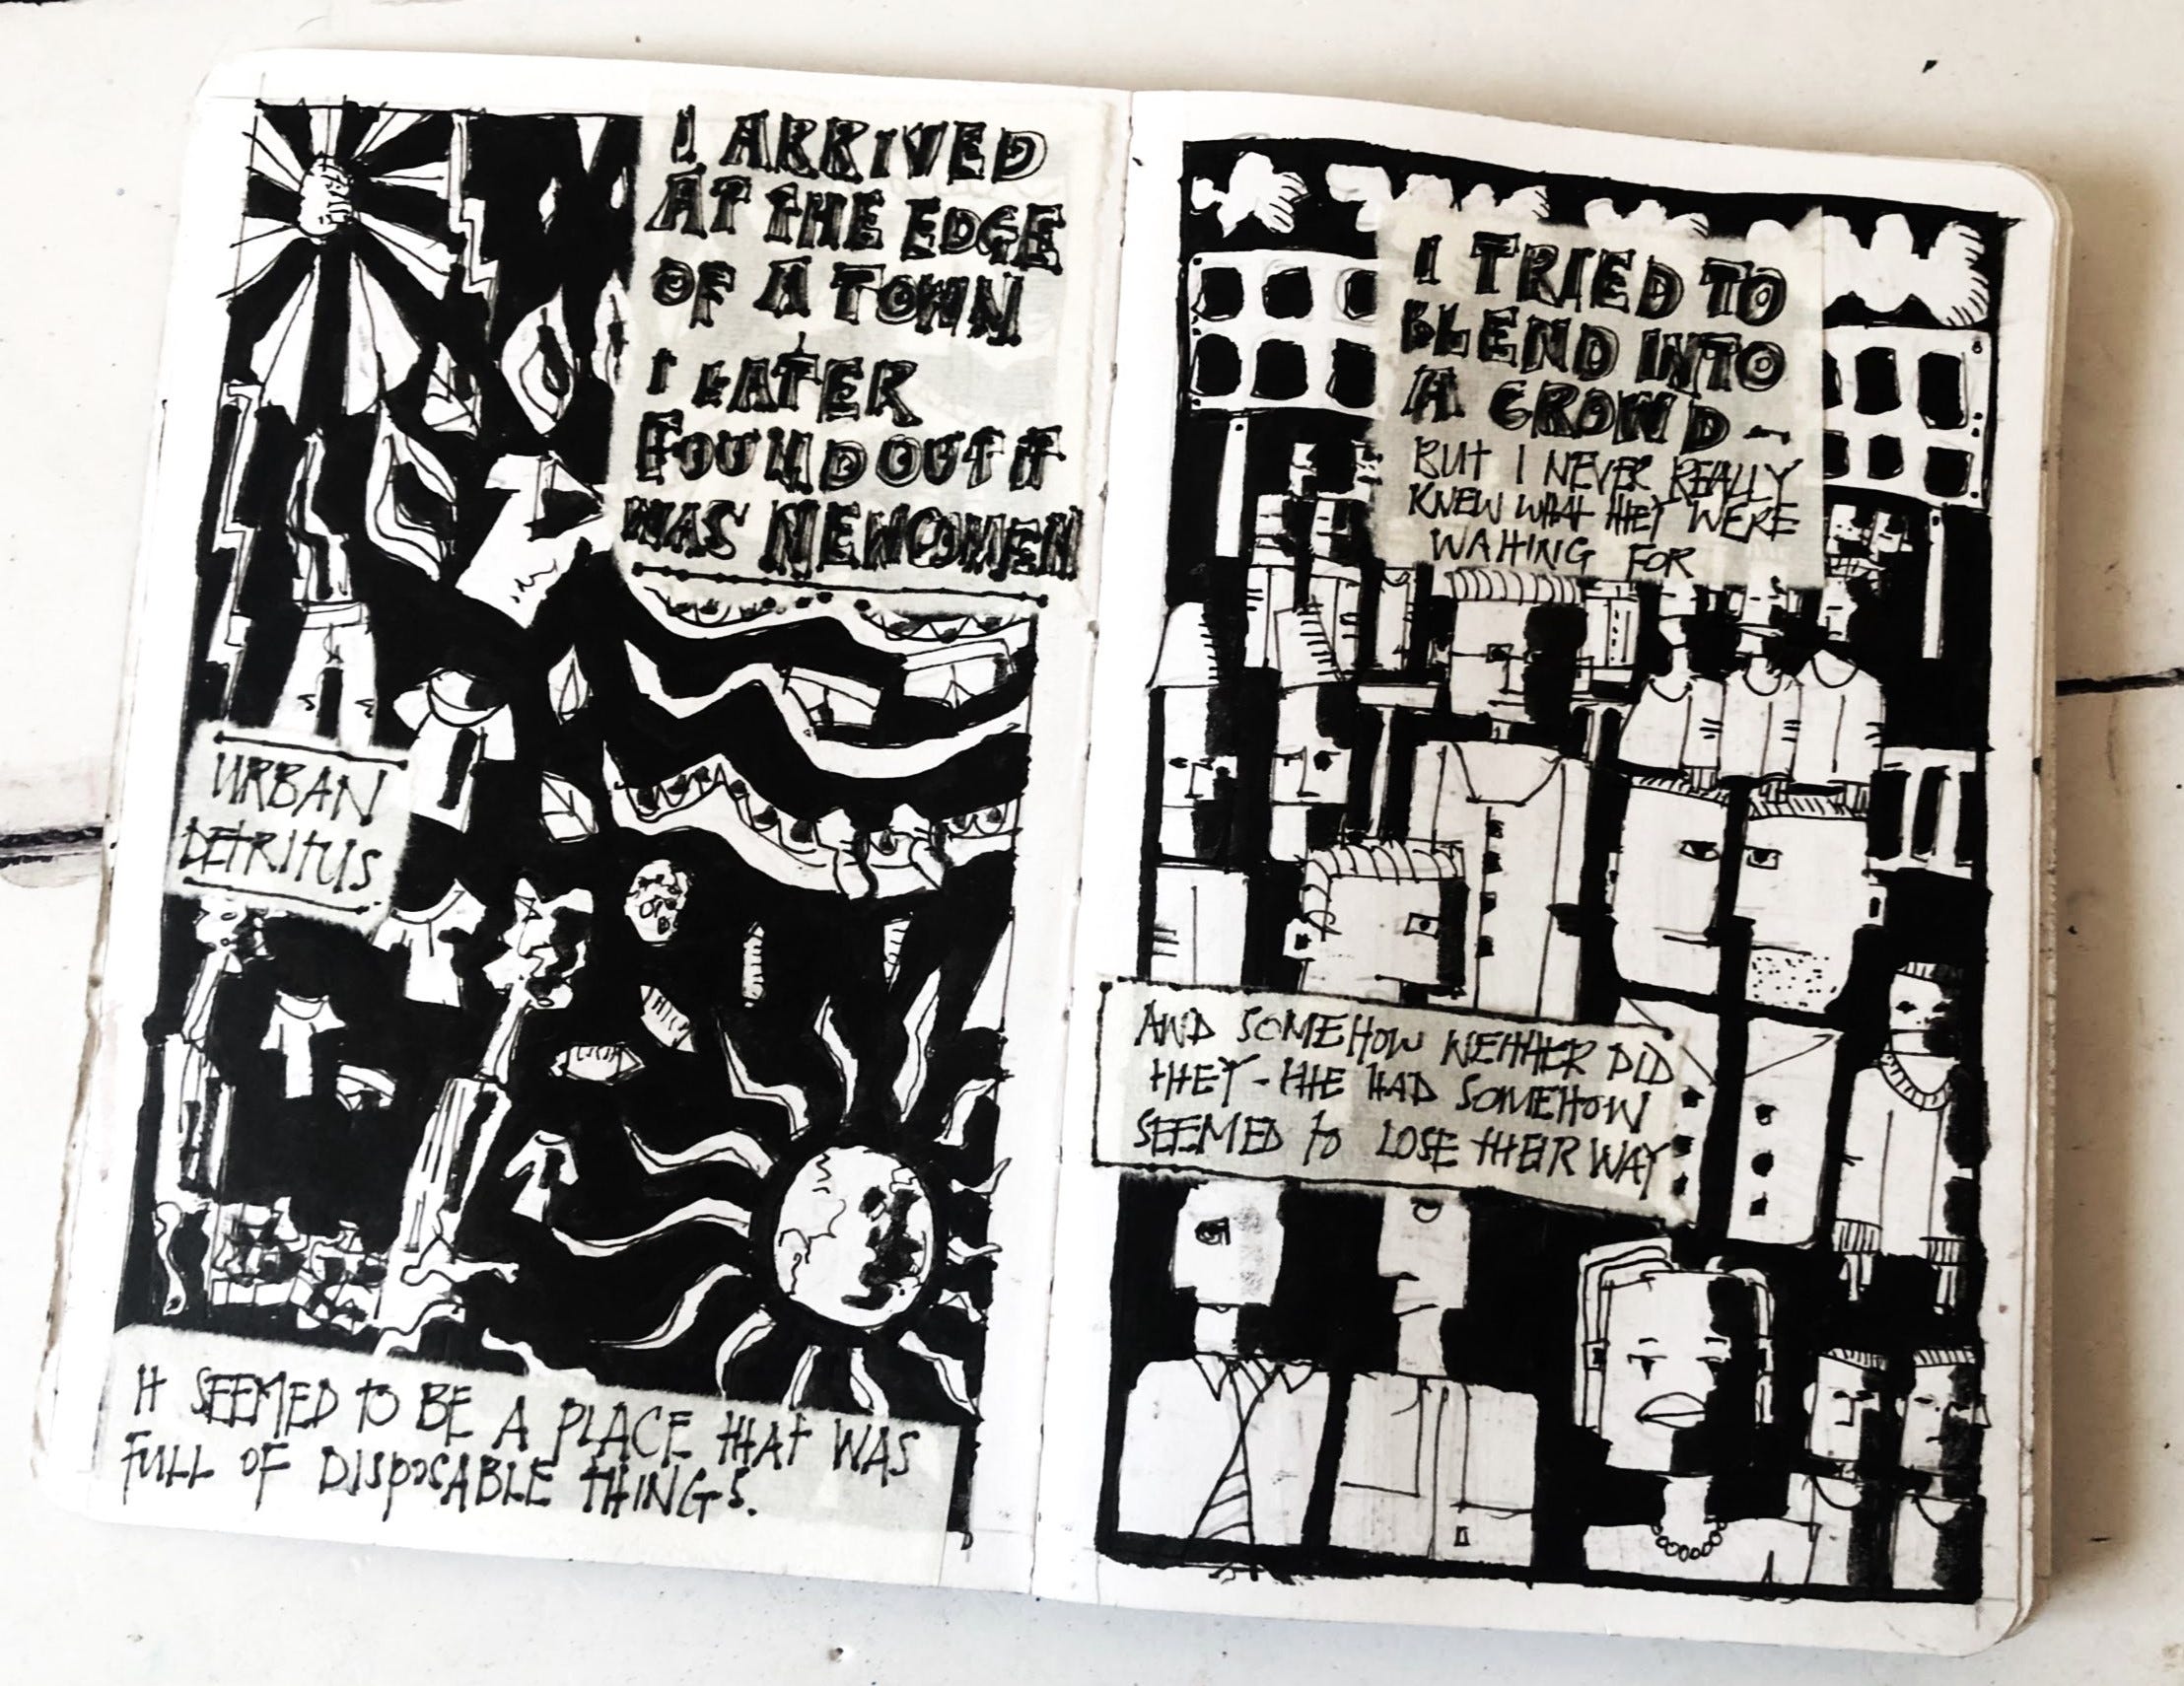 I ARRIVED
AT THE EDGE
OF A TOWN
I LATER
FOUND OUT IT
WAS NEWCOMEN
URBAN
DETRITUS
IT SEEMED TO BE A PLACE THAT WAS
FULL OF DISPOSABLE THINGS.
I TRIED TO
BLEND INTO
A CROWD -
BUT I NEVER REALLY
KNEW WHAT THEY WERE
WAITING FOR
AND SOMEHOW NEITHER DID
THEY - THE HAD SOMEHOW
SEEMED TO LOSE THEIR WAY